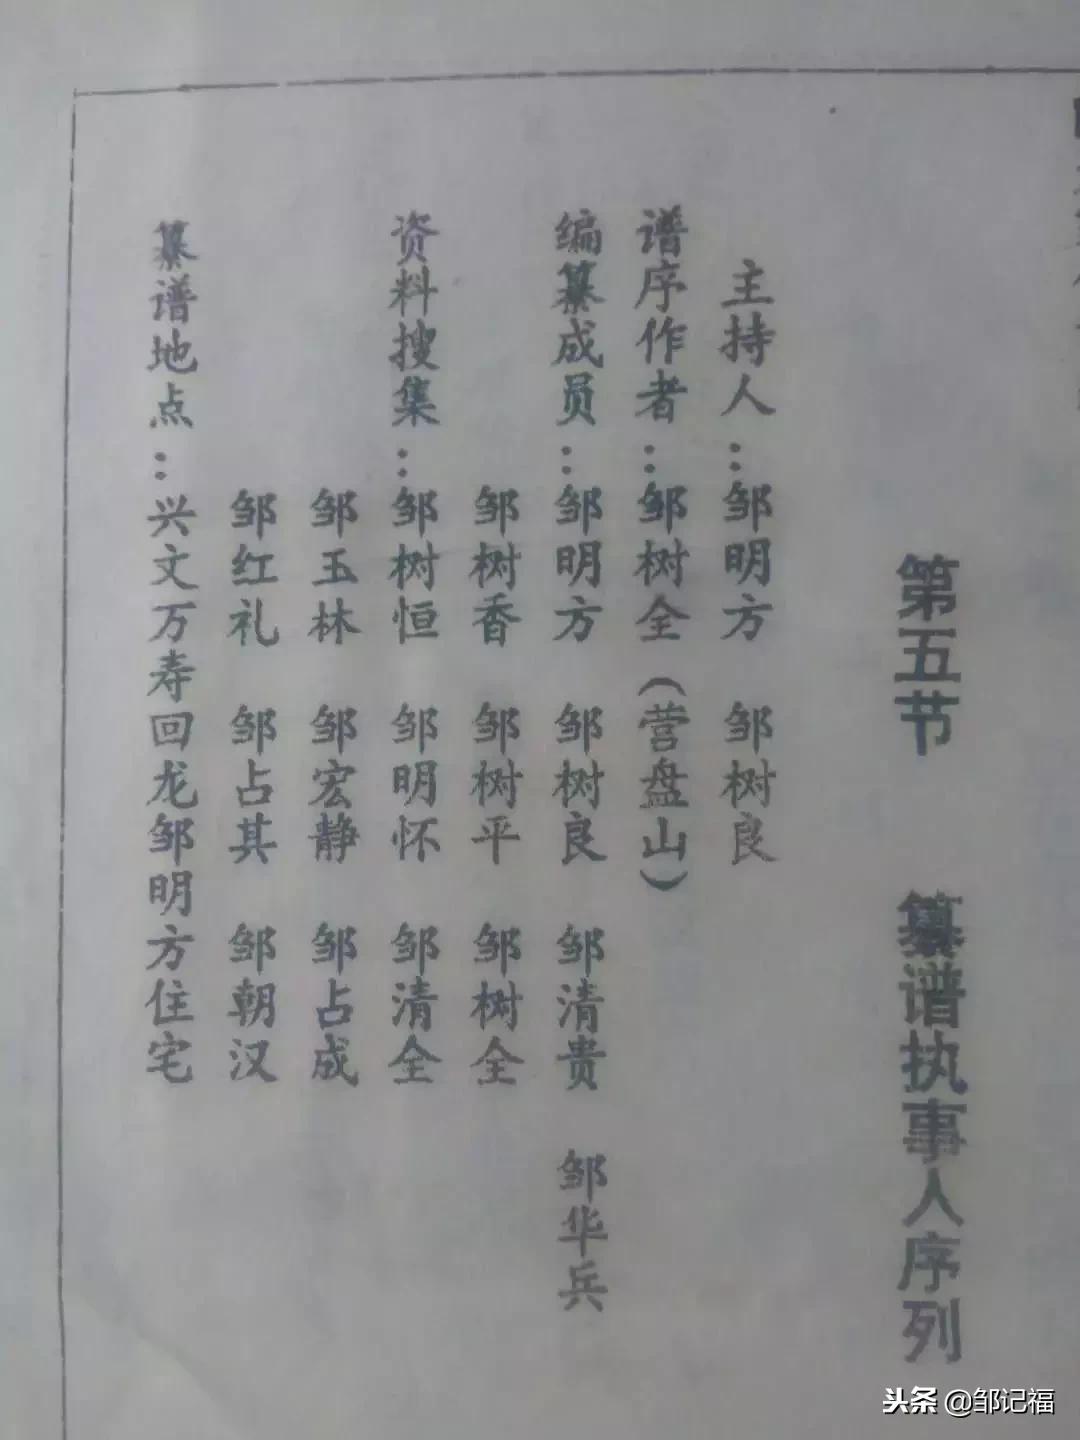 第五节 纂谱执事人序列
主持人：邹明方 邹树良
谱序作者：邹树全（营盘山）
编纂成员：邹明方 邹树良 邹清贵 邹华兵
邹树香 邹树平 邹树全
资料搜集：邹树恒 邹明怀 邹清全
邹玉林 邹宏静 邹占成
邹红礼 邹占其 邹朝汉
纂谱地点：兴文万寿回龙邹明方住宅
头条 @邹记福